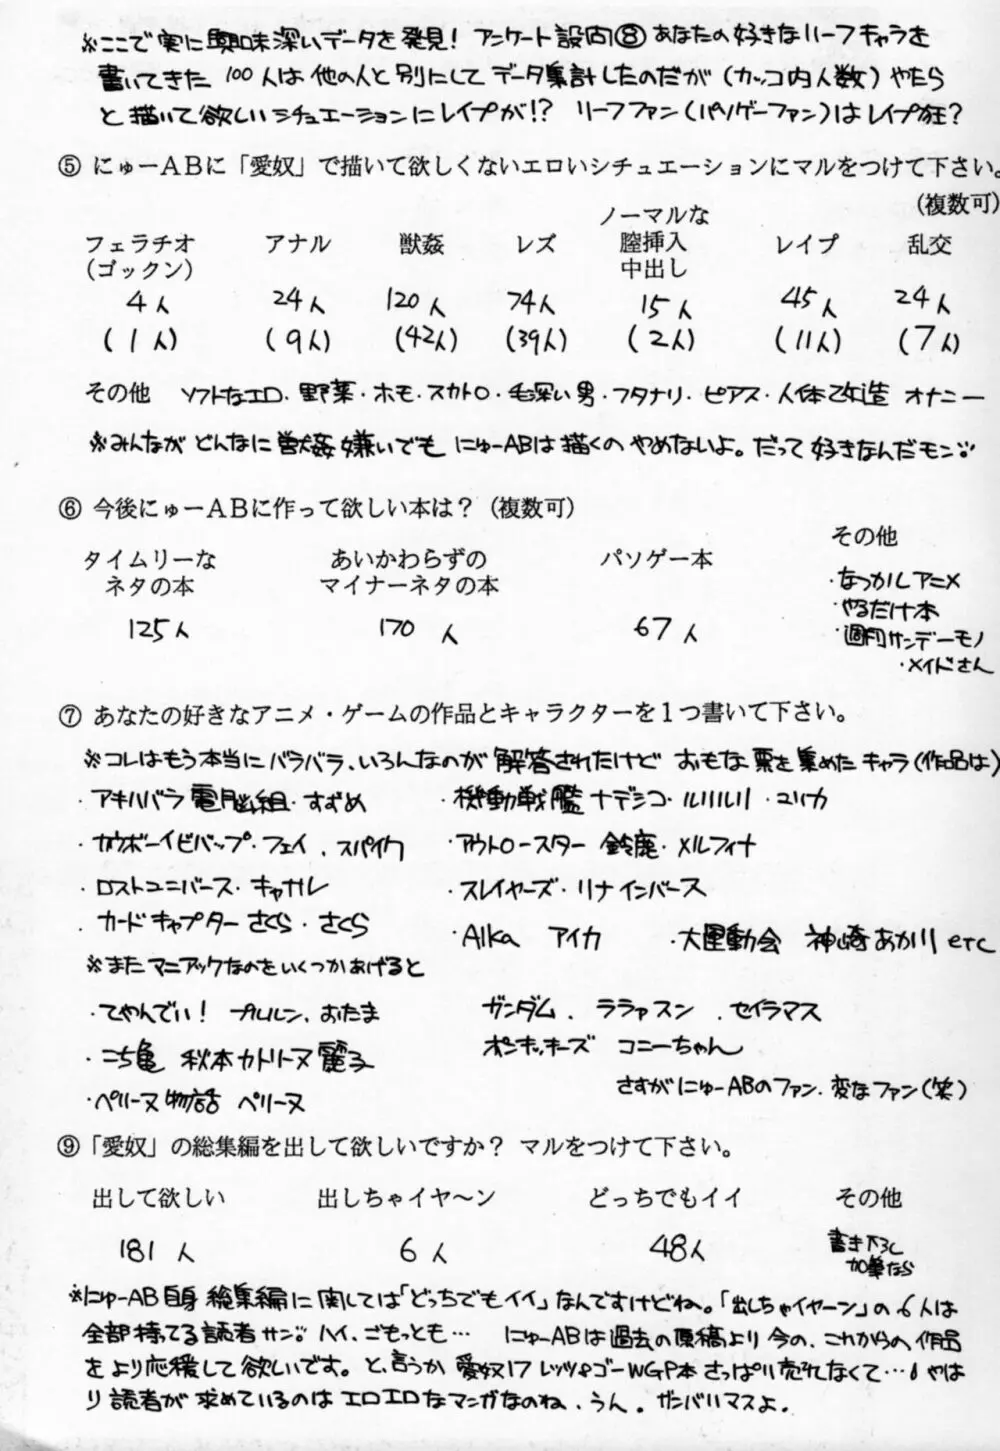 ※ここで実に興味深いデータを発見! アンケート設問⑧あなたの好きなリーフキャラを
書いてきた 100人は他の人と別にしてデータ集計したのだが(カッコ内人数)やたら
と描いて欲しいシチュエーションにレイプが!? リーフファン(パソゲーファン)はレイプ狂?
⑤ にゅーABに「愛奴」で描いて欲しくないエロいシチュエーションにマルをつけて下さい。
(複数可)
フェラチオ(ゴックン) アナル 獣姦 レズ ノーマルな膣挿入中出し レイプ 乱交
4人 24人 120人 74人 15人 45人 24人
(1人) (9人) (42人) (39人) (2人) (11人) (7人)
その他 ソフトなエロ・野薬・ホモ・スカトロ・毛深い男・フタナリ・ピアス・人体改造 オナニー
※みんながどんなに獣姦嫌いでも にゅーABは描くのやめないよ。だって好きなんだモン
⑥ 今後にゅーABに作って欲しい本は?(複数可)
タイムリーなネタの本 あいかわらずのマイナーネタの本 パソゲー本 その他
125人 170人 67人
・なつかしアニメ
・やるだけ本
・週刊サンデーモノ
・メイドさん
⑦ あなたの好きなアニメ・ゲームの作品とキャラクターを1つ書いて下さい。
※コレはもう本当にバラバラ、いろんなのが解答されたけど おもな票を集めたキャラ(作品は)
・アキハバラ電脳組・すずめ ・機動戦艦ナデシコ・ルリルリ・ユリカ
・カウボーイビバップ・フェイ、スパイク ・アウトロースター 鈴鹿・メルフィナ
・ロストユニバース・キャナル ・スレイヤーズ・リナインバース
・カードキャプターさくら・さくら ・AIka アイカ ・大運動会 神崎あかり etc
※またマニアックなのをいくつかあげると
・てやんでぃ! プルルン、おたま ガンダム、ララァスン、セイラマス
・こち亀 秋本カトリーヌ麗子 ポンキッキーズ コニーちゃん
・ペリーヌ物語 ペリーヌ さすがにゅーABのファン、変なファン(笑)
⑨ 「愛奴」の総集編を出して欲しいですか? マルをつけて下さい。
出して欲しい 出しちゃイヤ〜ン どっちでもイイ その他
181人 6人 48人 書き下ろし加筆なら
※にゅーAB自身 総集編に関しては「どっちでもイイ」なんですけどね。「出しちゃイヤーン」の6人は
全部持てる読者サン。ハイ、ごもっとも… にゅーABは過去の原稿より今の、これからの作品
をより応援して欲しいです。と、言うか 愛奴17 レッツ&ゴーWGP本さっぱり売れなくて…。やは
り読者が求めているのはエロエロなマンガなのね、うん。ガンバリマスよ。